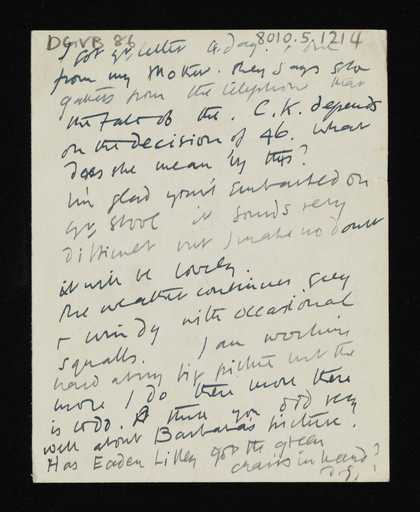 DGVB 86 8010.5.1214
I got yr letter today, & one
from my Mother. They says she
gathers from the telephone that
the Fate of the C.K. depends
on the decision of 46. What
does she mean by this?
I'm glad you're embarked on
yr stove it sounds very
difficult but I make no doubt
it will be lovely.
The weather continues grey
+ windy with occasional
squalls. I am working
hard at my big picture but the
more I do the more there
is to do. I think you did very
well about Barbara's picture.
Has Eaden Lilley got the green
chairs in hand?
D.G.